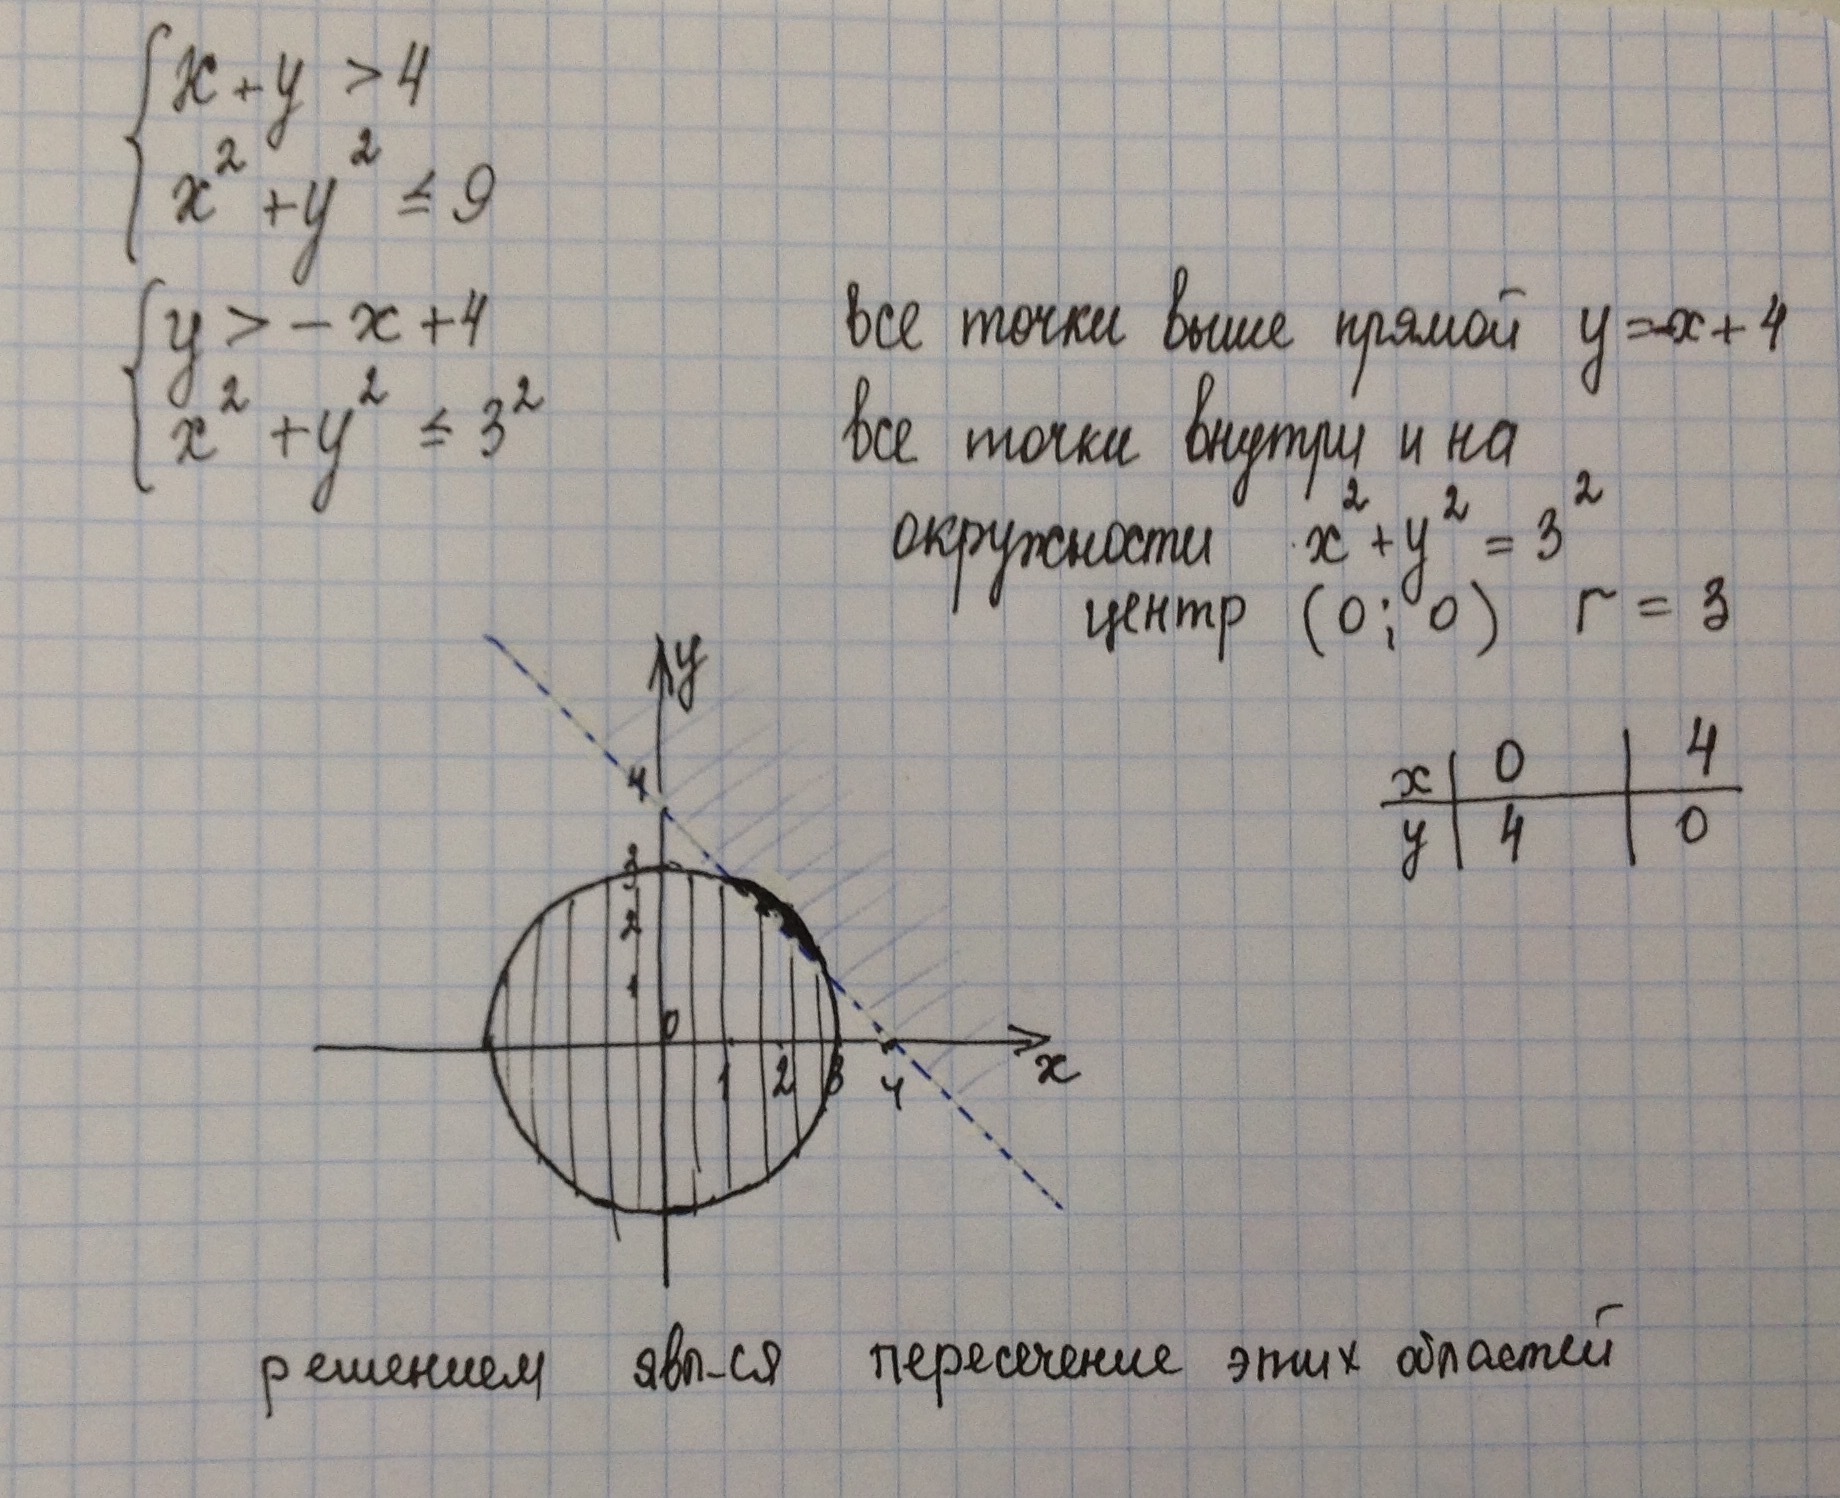 x + y > 4
x² + y² ≤ 9
y > - x + 4
все точки выше прямой y = -x + 4
x² + y² ≤ 3²
все точки внутри и на
окружности x² + y² = 3²
центр (0; 0) r = 3
y
x | 0 | 4
y | 4 | 0
4
3
2
1
0
1 2 3 4
x
решением явл-ся пересечение этих областей